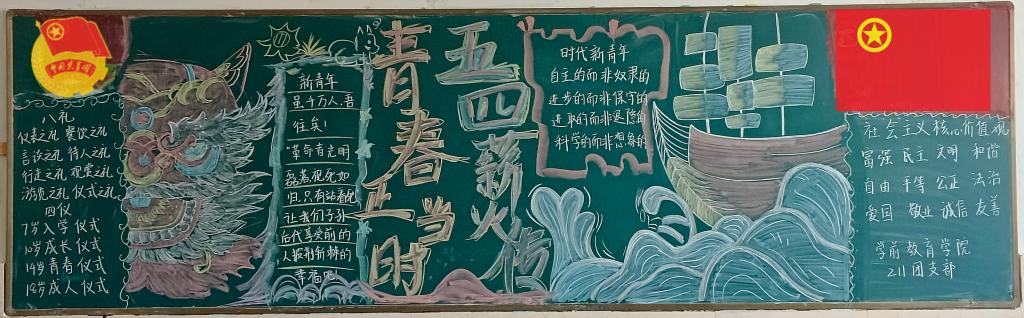 中国共青团
八礼
仪表之礼 餐饮之礼
言谈之礼 待人之礼
行走之礼 观赏之礼
游览之礼 仪式之礼
四仪
7岁入学仪式
10岁成长仪式
14岁青春仪式
18岁成人仪式
新青年
虽千万人,吾
往矣!
革命有光明
磊者,视死如
归,只有站着死
让我们子孙
后代享受前的
人披荆斩棘的
幸福吧!
青春正当时
五四薪火传
时代新青年
自主的而非奴隶的
进步的而非保守的
进取的而非退隐的
科学的而非想象的
社会主义核心价值观
富强 民主 文明 和谐
自由 平等 公正 法治
爱国 敬业 诚信 友善
学前教育学院
211团支部